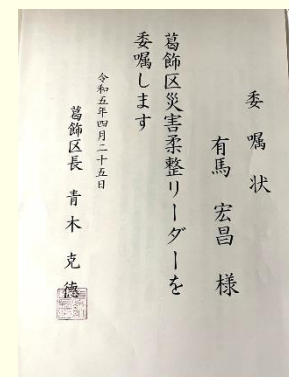 委嘱状
有馬 宏昌 様
葛飾区災害柔整リーダーを
委嘱します
令和五年四月二十五日
葛飾区長 青木 克德